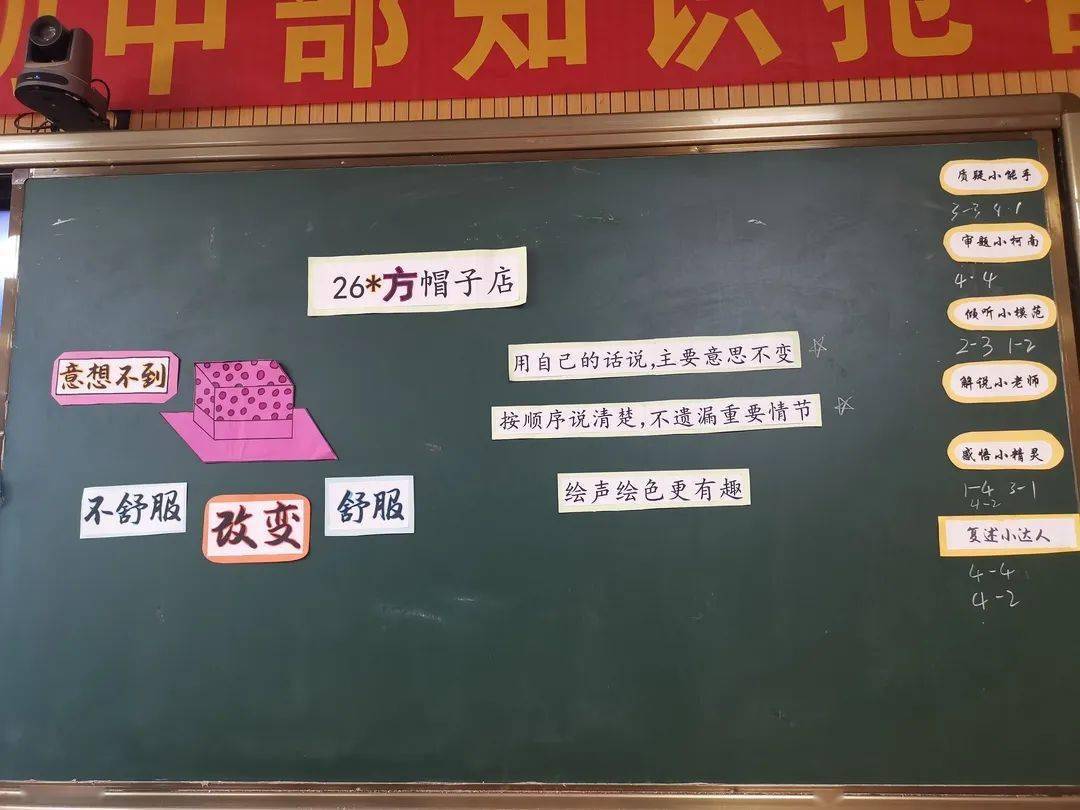 中部知识抢
26*方帽子店
意想不到
不舒服
改变
舒服
用自己的话说,主要意思不变
按顺序说清楚,不遗漏重要情节
绘声绘色更有趣
质疑小能手
3-3 4-1
审题小柯南
4-4
倾听小模范
2-3 1-2
解说小老师
感悟小精灵
1-4 3-1
4-2
复述小达人
4-4
4-2